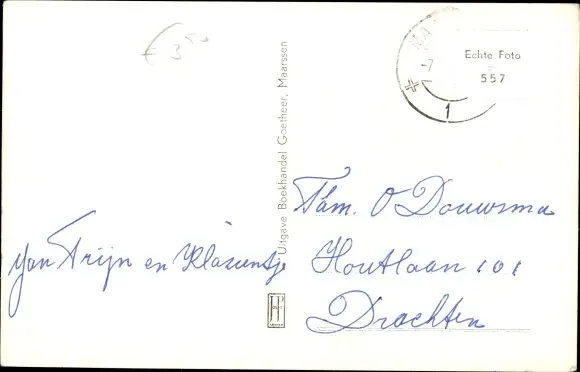 3
MA
Echte Foto
-7
557
1
Uitgave Boekhandel Goetheer, Maarssen
Fam. O Douwsma
van Trijn en Klasientje
Houtlaan 101
Drachten